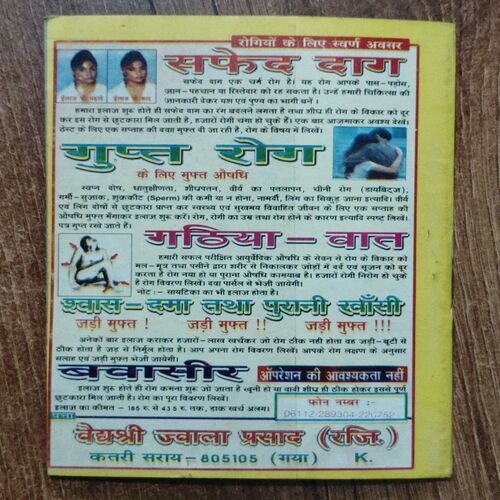 रोगियों के लिए स्वर्ण अवसर
सफेद दाग
इलाज से पहले इलाज के बाद
सफेद दाग एक चर्म रोग है। यह रोग आपके पास-पड़ोस,
जान-पहचान या रिस्तेदार को रह सकता है। उन्हें हमारी चिकित्सा की
जानकारी देकर यश एवं पुण्य का भागी बनें।
हमारा इलाज शुरू होते ही सफेद दाग का रंग बदलने लगता है तथा शीघ्र ही रोग के विकार को दूर
कर इस रोग से छुटकारा मिल जाती है, हजारों रोगी चंगा हो चुके हैं। एक बार आजमाकर अवश्य देखें।
टेस्ट के लिए एक सप्ताह की दवा मुफ्त दी जा रही है, रोग के विषय में लिखें।
गुप्त रोग
के लिए मुफ्त औषधि
स्वप्न दोष, धातुक्षीणता, शीघ्रपतन, वीर्य का पतलापन, चीनी रोग (डायबिट्ज),
गर्मी-सुजाक, शुक्रकीट (Sperm) की कमी या न होना, नामर्दी, लिंग का सिकुड़ जाना इत्यादि। वीर्य
एवं लिंग दोषों से छुटकारा प्राप्त कर स्वस्थ्य एवं सुखमय विवाहित जीवन के लिए एक सप्ताह की
औषधि मुफ्त मँगाकर इलाज शुरू करें। रोग, रोगी का उम्र तथा रोग होने के कारण इत्यादि स्पष्ट लिखें।
पत्र गुप्त रखे जाते हैं।
गठिया - वात
हमारी सफल परीक्षित आयुर्वेदिक औषधि के सेवन से रोग के विकार को
मल-मूत्र तथा पसीने द्वारा शरीर से निकालकर जोड़ों में दर्द एवं सूजन को दूर
करता है रोग नया हो या पुराना औषधि कामयाब है। हजारों रोगी निरोग हो चुके
है रोग विवरण लिखें। दवा पार्सल से भेजी जायेगी।
नोट :- सायटिका का भी इलाज होता है।
श्वास-दमा तथा पुरानी खाँसी
जड़ी मुफ्त ! जड़ी मुफ्त !! जड़ी मुफ्त !!!
अनेकों बार इलाज कराकर हजारों-लाख खर्चकर जो रोग ठीक नहीं होता वह जड़ी-बूटी से
ठीक होता है जड़ से निर्मूल होता है। आप अपना रोग विवरण लिखें। आपके रोग लक्षण के अनुसार
सलाह एवं जड़ी मुफ्त भेजी जायेगी।
बवासीर ऑपरेशन की आवश्यकता नहीं
इलाज शुरू होते ही रोग कमना शुरू हो जाता है खूनी हो या वादी शीघ्र ही ठीक होकर इससे पूर्ण
छुटकारा मिल जाती है। रोग का पूरा विवरण लिखें।
इलाज का कीमत - 185 रु. से 435 रु. तक, डाक खर्च अलग।
फोन नम्बर :-
06112-289304-220752
पता
वैद्यश्री ज्वाला प्रसाद (रजि.)
कतरी सराय-805105 (गया) K.